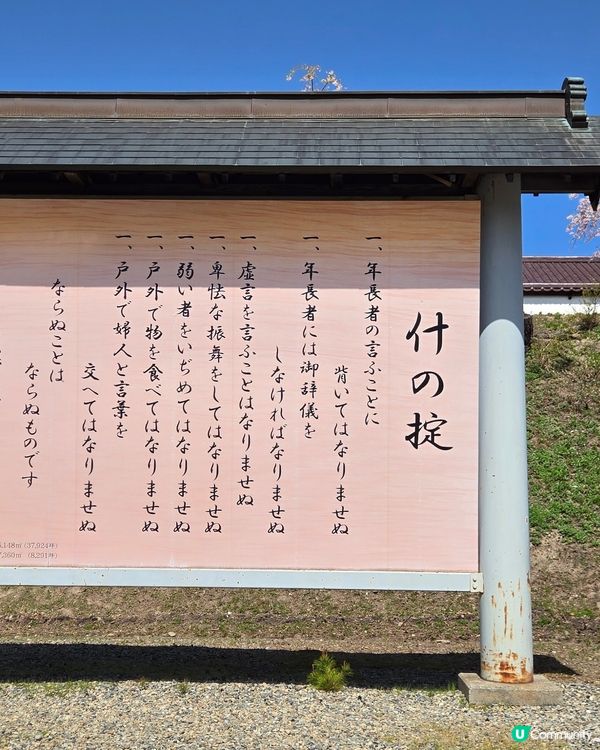 什の掟
一、年長者の言ふことに
背いてはなりませぬ
一、年長者には御辞儀を
しなければなりませぬ
一、虚言を言ふことはなりませぬ
一、卑怯な振舞をしてはなりませぬ
一、弱い者をいぢめてはなりませぬ
一、戸外で物を食べてはなりませぬ
一、戸外で婦人と言葉を
交へてはなりませぬ
ならぬことは
ならぬものです
5,148㎡ (37,924坪)
7,360㎡ (8,291坪)
U Community